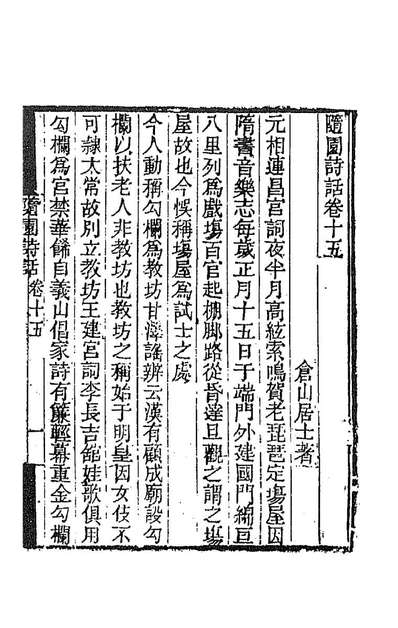 隨園詩話卷十五
倉山居士著
元相連昌宮詞夜半月高絃索鳴賀老琵琶定塲屋因
隋書音樂志每歲正月十五日于端門外建國門綿亘
八里列爲戲塲百官起棚脚路從昏達旦觀之謂之塲
屋故也今悞稱塲屋爲試士之處
今人動稱勾欄爲教坊甘澤謠辨云漢有顧成廟設勾
欄以扶老人非教坊也教坊之稱始于明皇因女伎不
可隸太常故別立教坊王建宮詞李長吉館娃歌俱用
勾欄爲宮禁華飾自義山倡家詩有簾輕幕重金勾欄
隨園詩話 卷十五